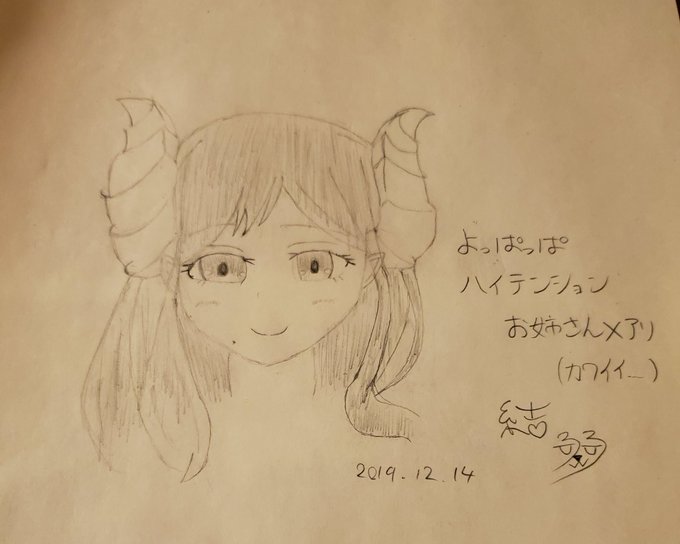 よっぱっぱ
ハイテンション
お姉さんメアリ
(カワイイ…)
結
2019.12.14